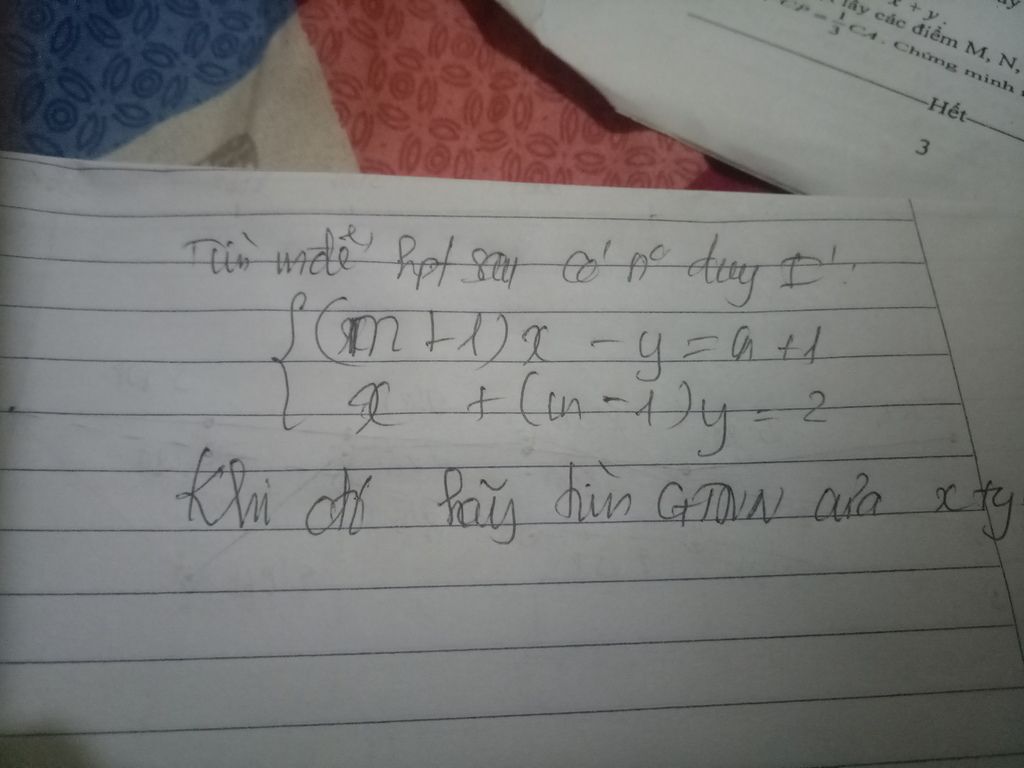 x + y.
lấy các điểm M, N,
CP = 1/3 CA. Chứng minh
Hết
3
Tìm m để hpt sau có nº duy I'.
(m+1)x - y = m+1
x + (m-1)y = 2
Khi đó hãy tìm GTNN của x+y